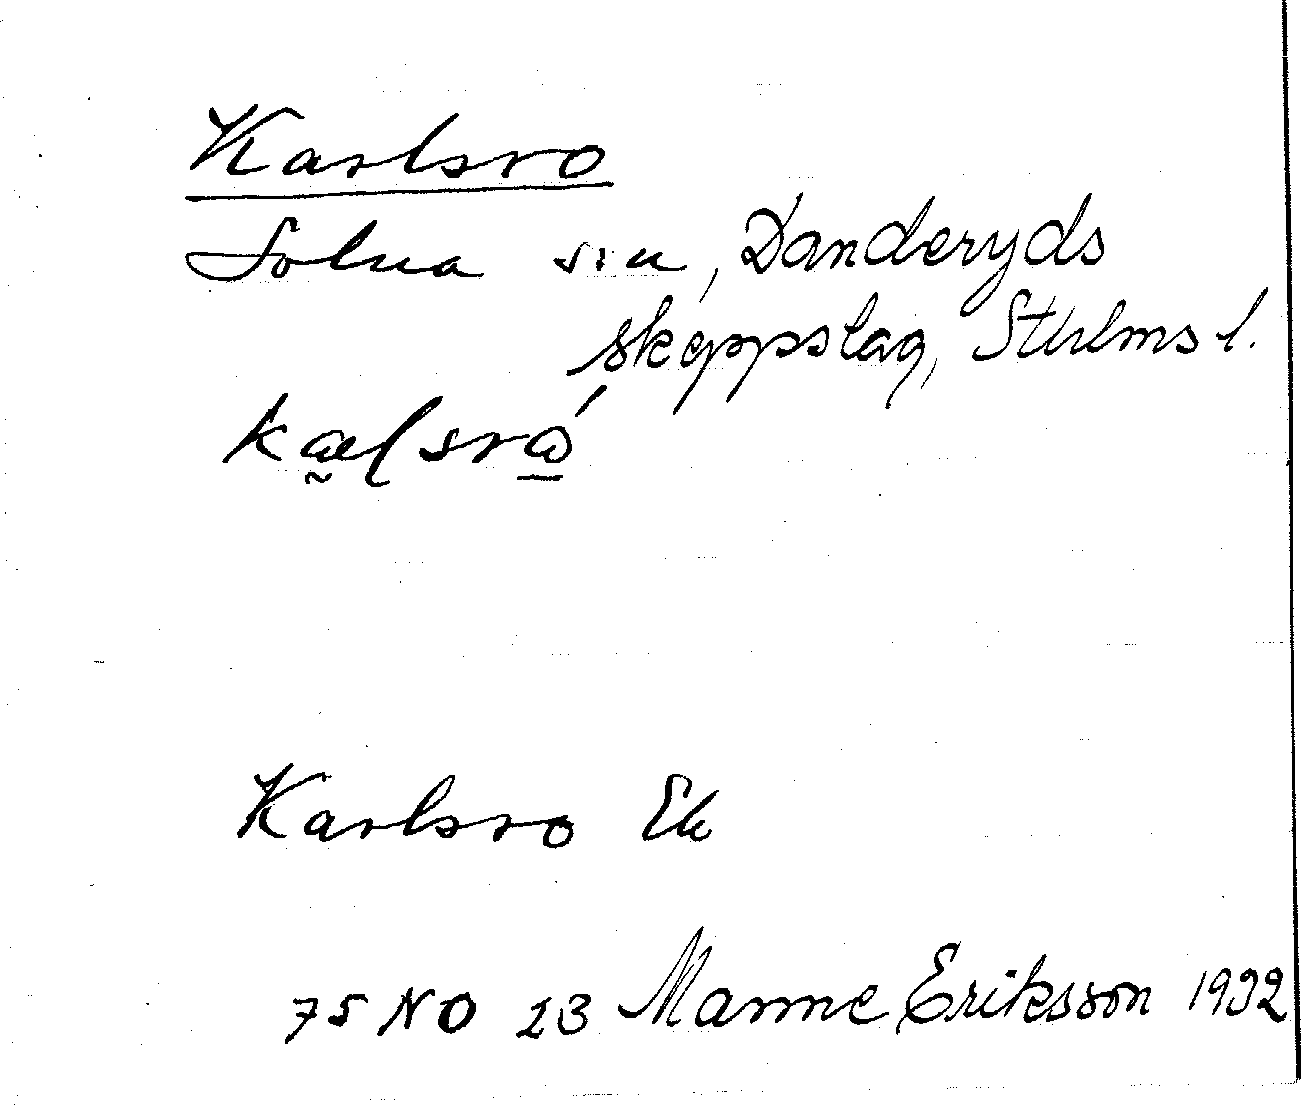 Karlsro
Solna sn, Danderyds
skeppslag, Sthlms l.
Karlsro Ek
75 NO 23 Manne Eriksson 1932